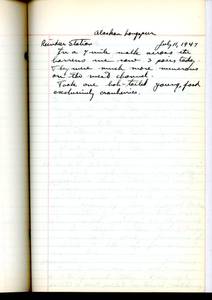 Alaskan Longspur
Reindeer Station July 11, 1947
In a 7 mile walk across the
barrens we saw 3 pairs today.
They were much more numerous
on the west channel.
Took one bob-tailed young, food
exclusively cranberries.